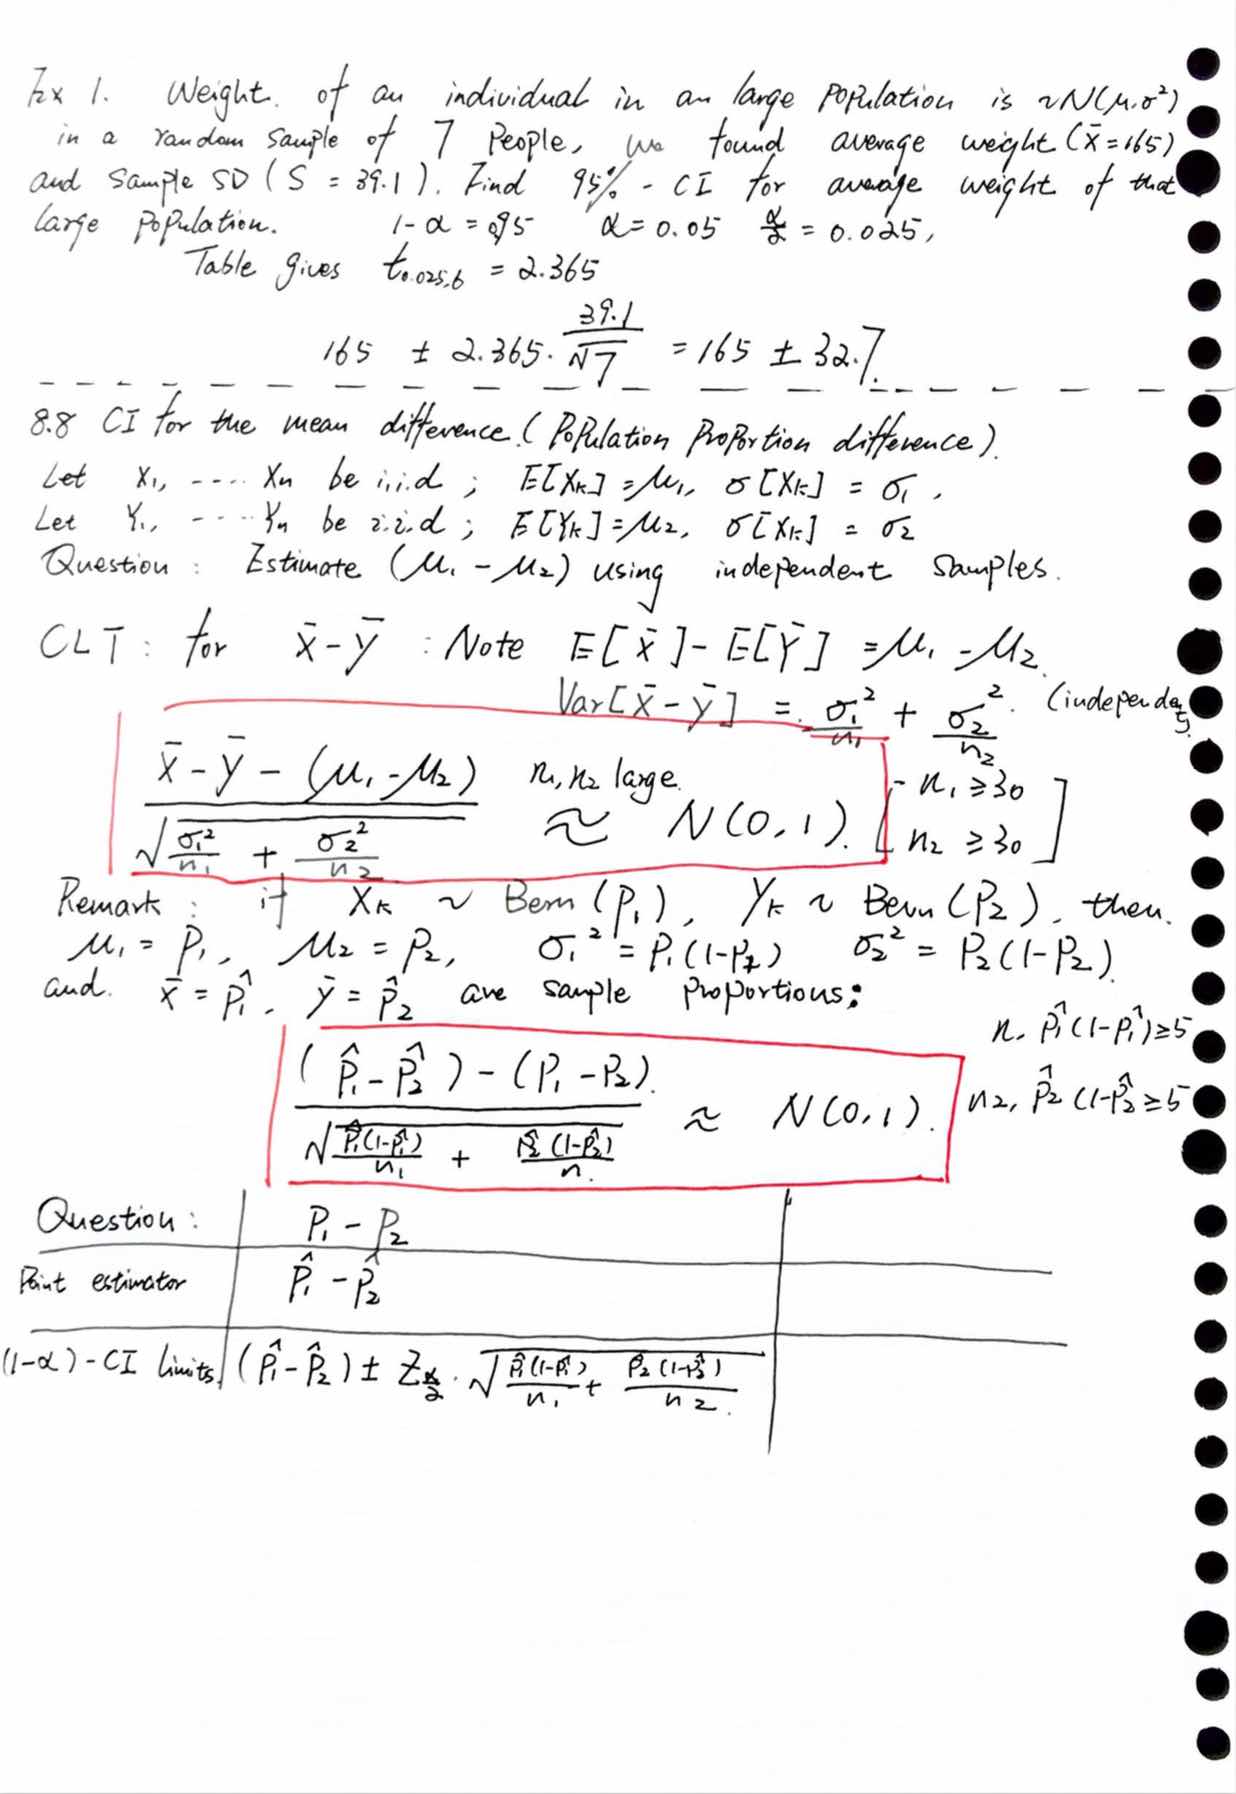 Ex 1. Weight. of an individual in an large population is ~N(μ.σ²)
in a random sample of 7 people, we found average weight (x̄=165)
and sample SD (S = 39.1). Find 95% - CI for average weight of that
large population. 1-α = 0.95 α = 0.05 α/2 = 0.025,
Table gives t₀.₀₂₅,₆ = 2.365
165 ± 2.365 · 39.1/√7 = 165 ± 32.7.
8.8 CI for the mean difference. (Population Proportion difference).
Let X₁, ---- Xn be i.i.d ; E[Xk] = μ₁, σ[Xk] = σ₁,
Let Y₁, ---- Yn be i.i.d ; E[Yk] = μ₂, σ[Xk] = σ₂
Question : Estimate (μ₁ - μ₂) using independent samples.
CLT : for x̄ - ȳ : Note E[x̄] - E[Ȳ] = μ₁ - μ₂.
Var[x̄ - ȳ] = σ₁²/n₁ + σ₂²/n₂. (independent).
(x̄ - ȳ - (μ₁ - μ₂)) / √(σ₁²/n₁ + σ₂²/n₂) n₁, n₂ large. ≈ N(0,1). [n₁ ≥ 30
n₂ ≥ 30]
Remark : if Xk ~ Bern(P₁), Yk ~ Bern(P₂), then.
μ₁ = P₁, μ₂ = P₂, σ₁² = P₁(1-P₁) σ₂² = P₂(1-P₂).
and. x̄ = p̂₁, ȳ = p̂₂ are sample proportions:
n, p̂₁(1-p̂₁) ≥ 5
n₂, p̂₂(1-p̂₂ ≥ 5
((p̂₁ - p̂₂) - (P₁ - P₂)) / √(p̂₁(1-p̂₁)/n₁ + p̂₂(1-p̂₂)/n.) ≈ N(0,1).
Question : P₁ - P₂
Point estimator p̂₁ - p̂₂
(1-α) - CI limits. (p̂₁ - p̂₂) ± Zα/2 · √(p̂₁(1-p̂₁)/n₁ + p̂₂(1-p̂₂)/n₂).